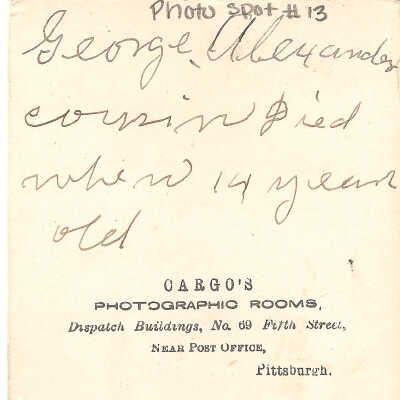 Photo Spot #13
George Alexander
cousin Died
when 14 years
old
CARGO'S
PHOTOGRAPHIC ROOMS,
Dispatch Buildings, No. 69 Fifth Street,
NEAR POST OFFICE,
Pittsburgh.